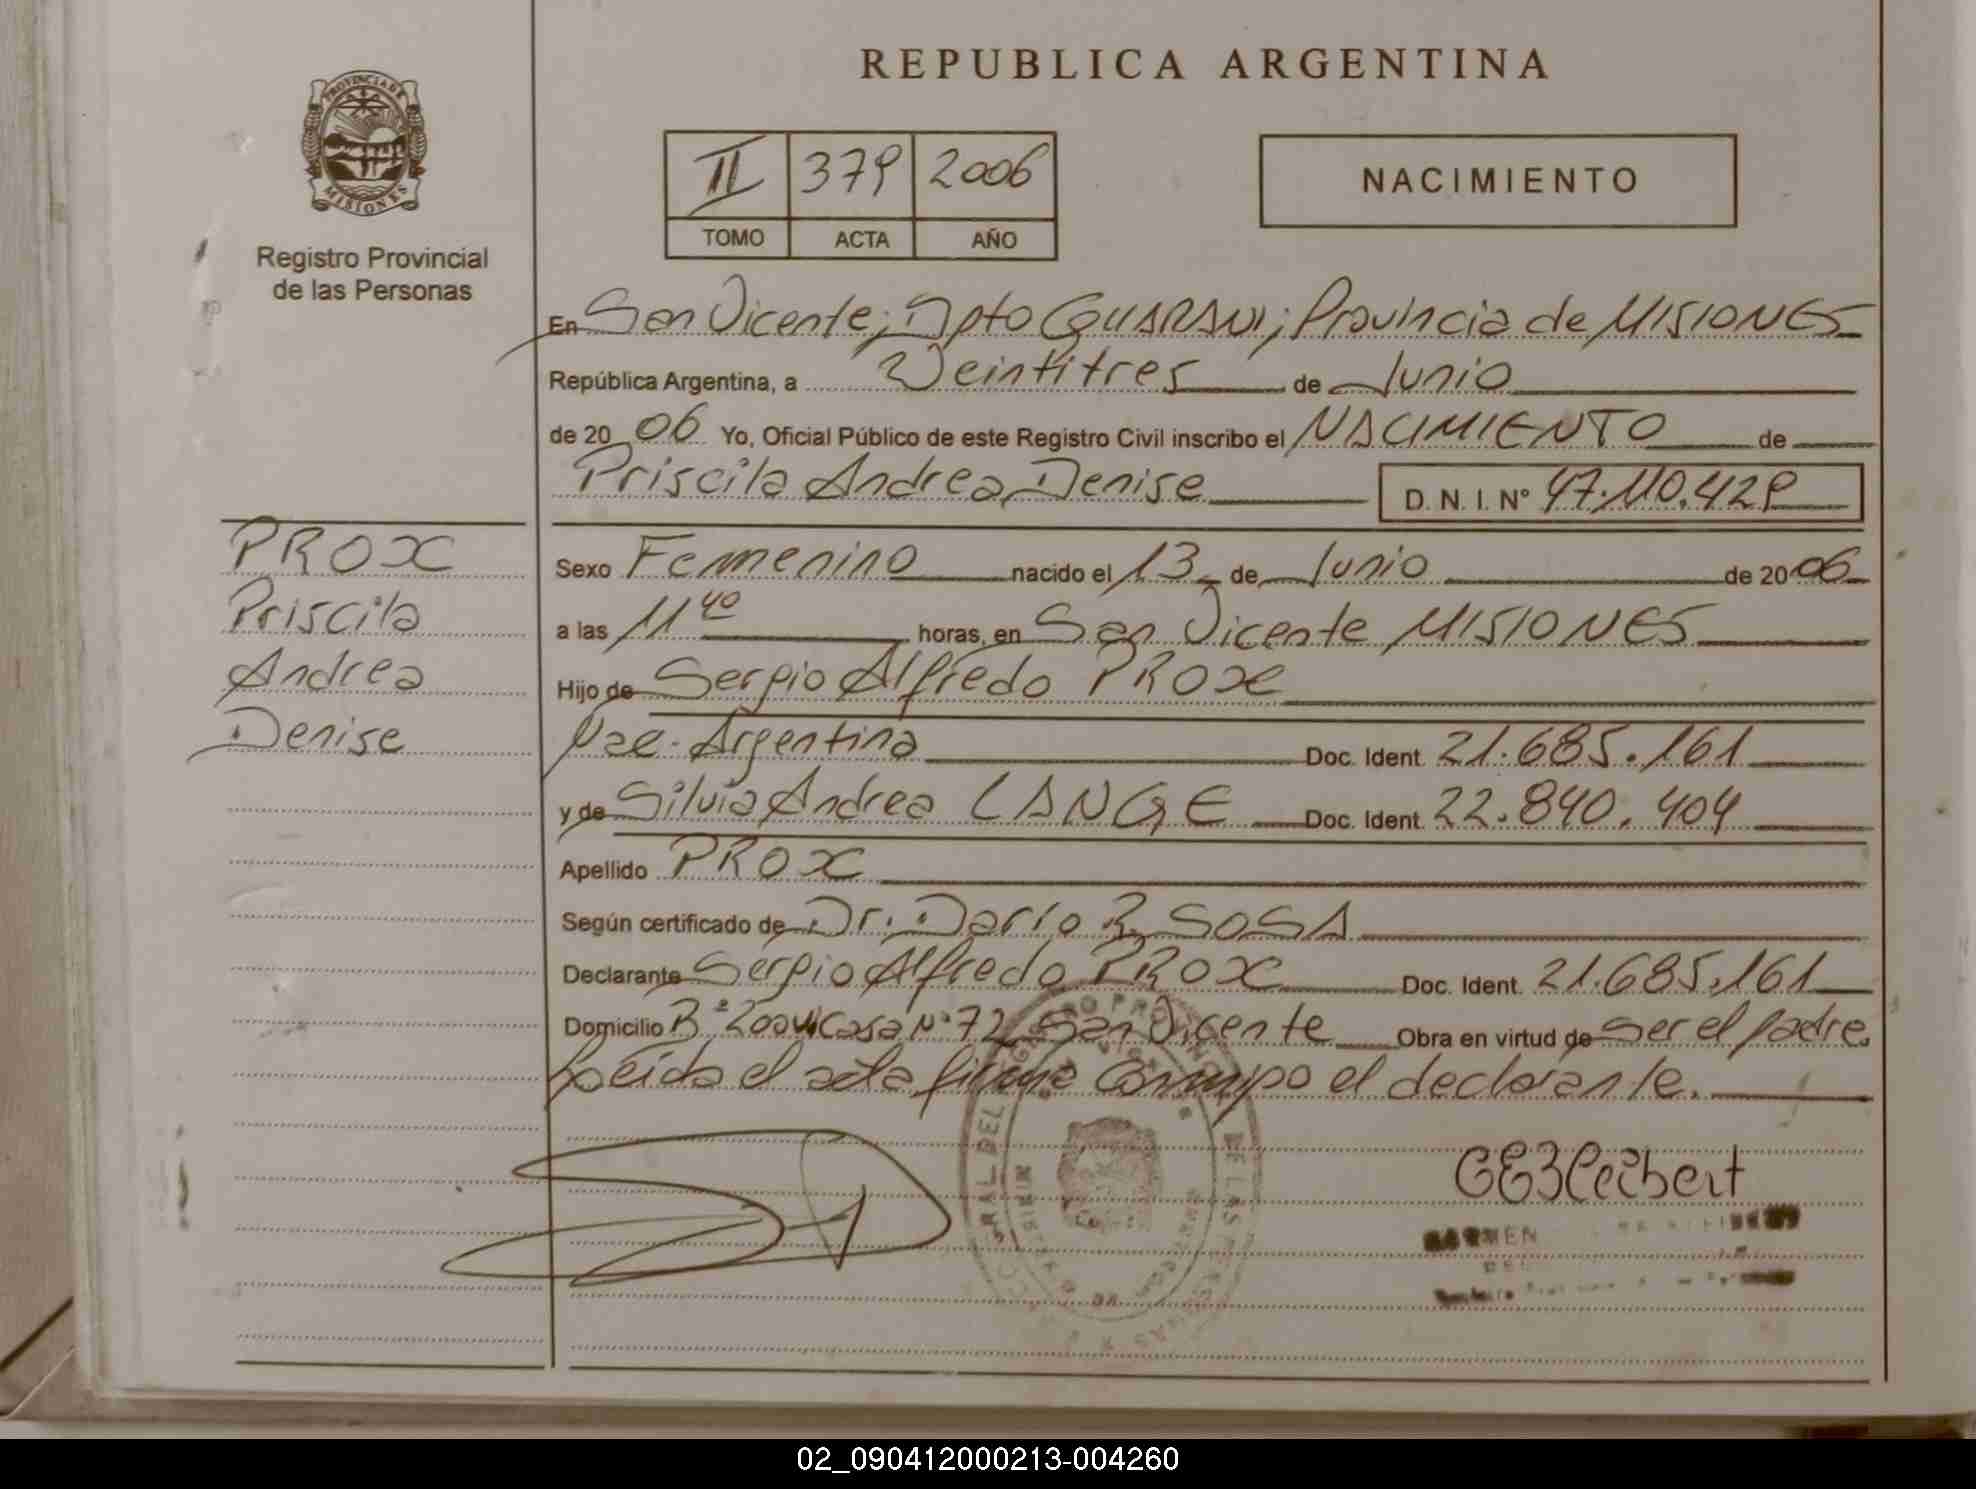 REPUBLICA ARGENTINA
PROVINCIA DE
MISIONES
Registro Provincial
de las Personas
II 379 2006
TOMO ACTA AÑO
NACIMIENTO
En San Vicente; Dpto GUARANI; Provincia de MISIONES
República Argentina, a Veintitres de Junio
de 2006 Yo, Oficial Público de este Registro Civil inscribo el NACIMIENTO de
Priscila Andrea Denise D. N. I. Nº 47.110.429
PROX
Priscila
Andrea
Denise
Sexo Femenino nacido el 13 de Junio de 2006
a las 11 40 horas, en San Vicente MISIONES
Hijo de Sergio Alfredo PROX
Nac. Argentina Doc. Ident. 21.685.161
y de Silvia Andrea LANGE Doc. Ident. 22.840.404
Apellido PROX
Según certificado de Dr. Darío R. SOSA
Declarante Sergio Alfredo PROX Doc. Ident. 21.685.161
Domicilio Bº 200 Vi Casa Nº 72 San Vicente Obra en virtud de Ser el padre.
Leída el acta firma conmigo el declarante.
02_090412000213-004260